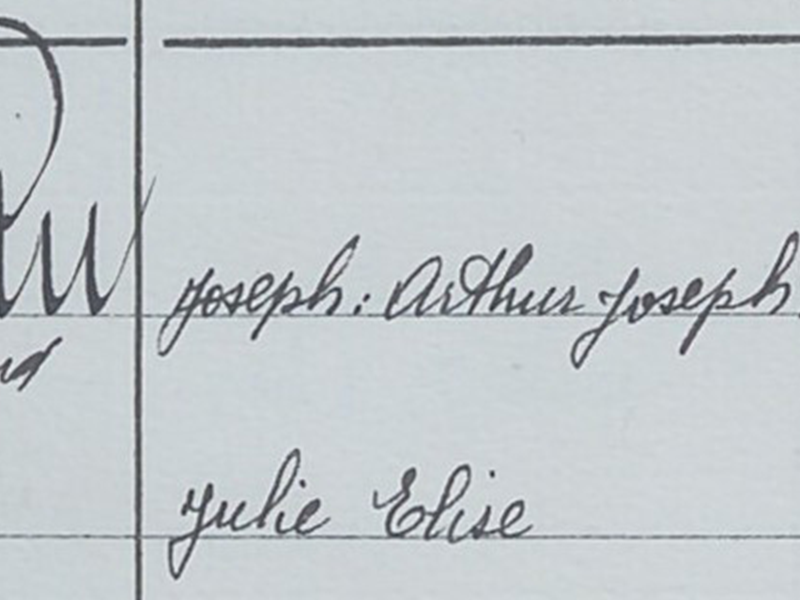 Joseph: Arthur Joseph
Julie Elise